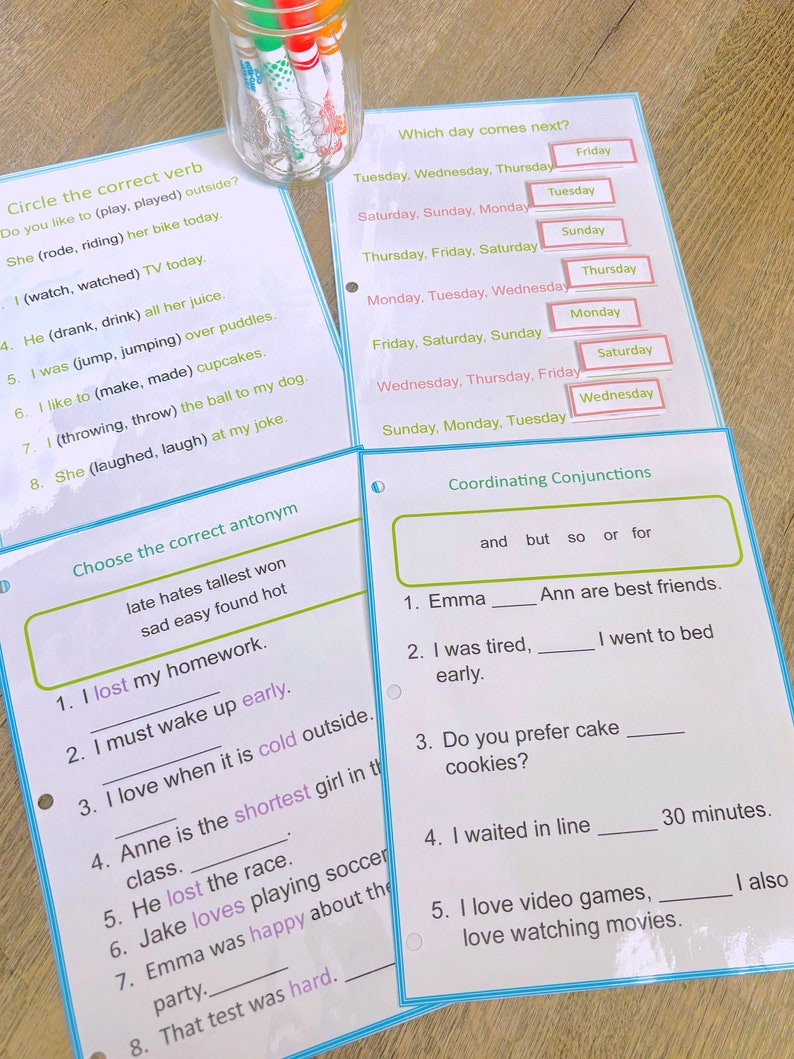 Circle the correct verb
Do you like to (play, played) outside?
She (rode, riding) her bike today.
I (watch, watched) TV today.
4. He (drank, drink) all her juice.
5. I was (jump, jumping) over puddles.
6. I like to (make, made) cupcakes.
7. I (throwing, throw) the ball to my dog.
8. She (laughed, laugh) at my joke.
Which day comes next?
Tuesday, Wednesday, Thursday Friday
Saturday, Sunday, Monday Tuesday
Thursday, Friday, Saturday Sunday
Monday, Tuesday, Wednesday Thursday
Friday, Saturday, Sunday Monday
Wednesday, Thursday, Friday Saturday
Sunday, Monday, Tuesday Wednesday
Choose the correct antonym
late hates tallest won
sad easy found hot
1. I lost my homework.
2. I must wake up early.
3. I love when it is cold outside.
4. Anne is the shortest girl in
class. ________.
5. He lost the race.
6. Jake loves playing soccer
7. Emma was happy about the
party.________
8. That test was hard. ____
Coordinating Conjunctions
and but so or for
1. Emma ____ Ann are best friends.
2. I was tired, _____ I went to bed
early.
3. Do you prefer cake _____
cookies?
4. I waited in line _____ 30 minutes.
5. I love video games, ______ I also
love watching movies.